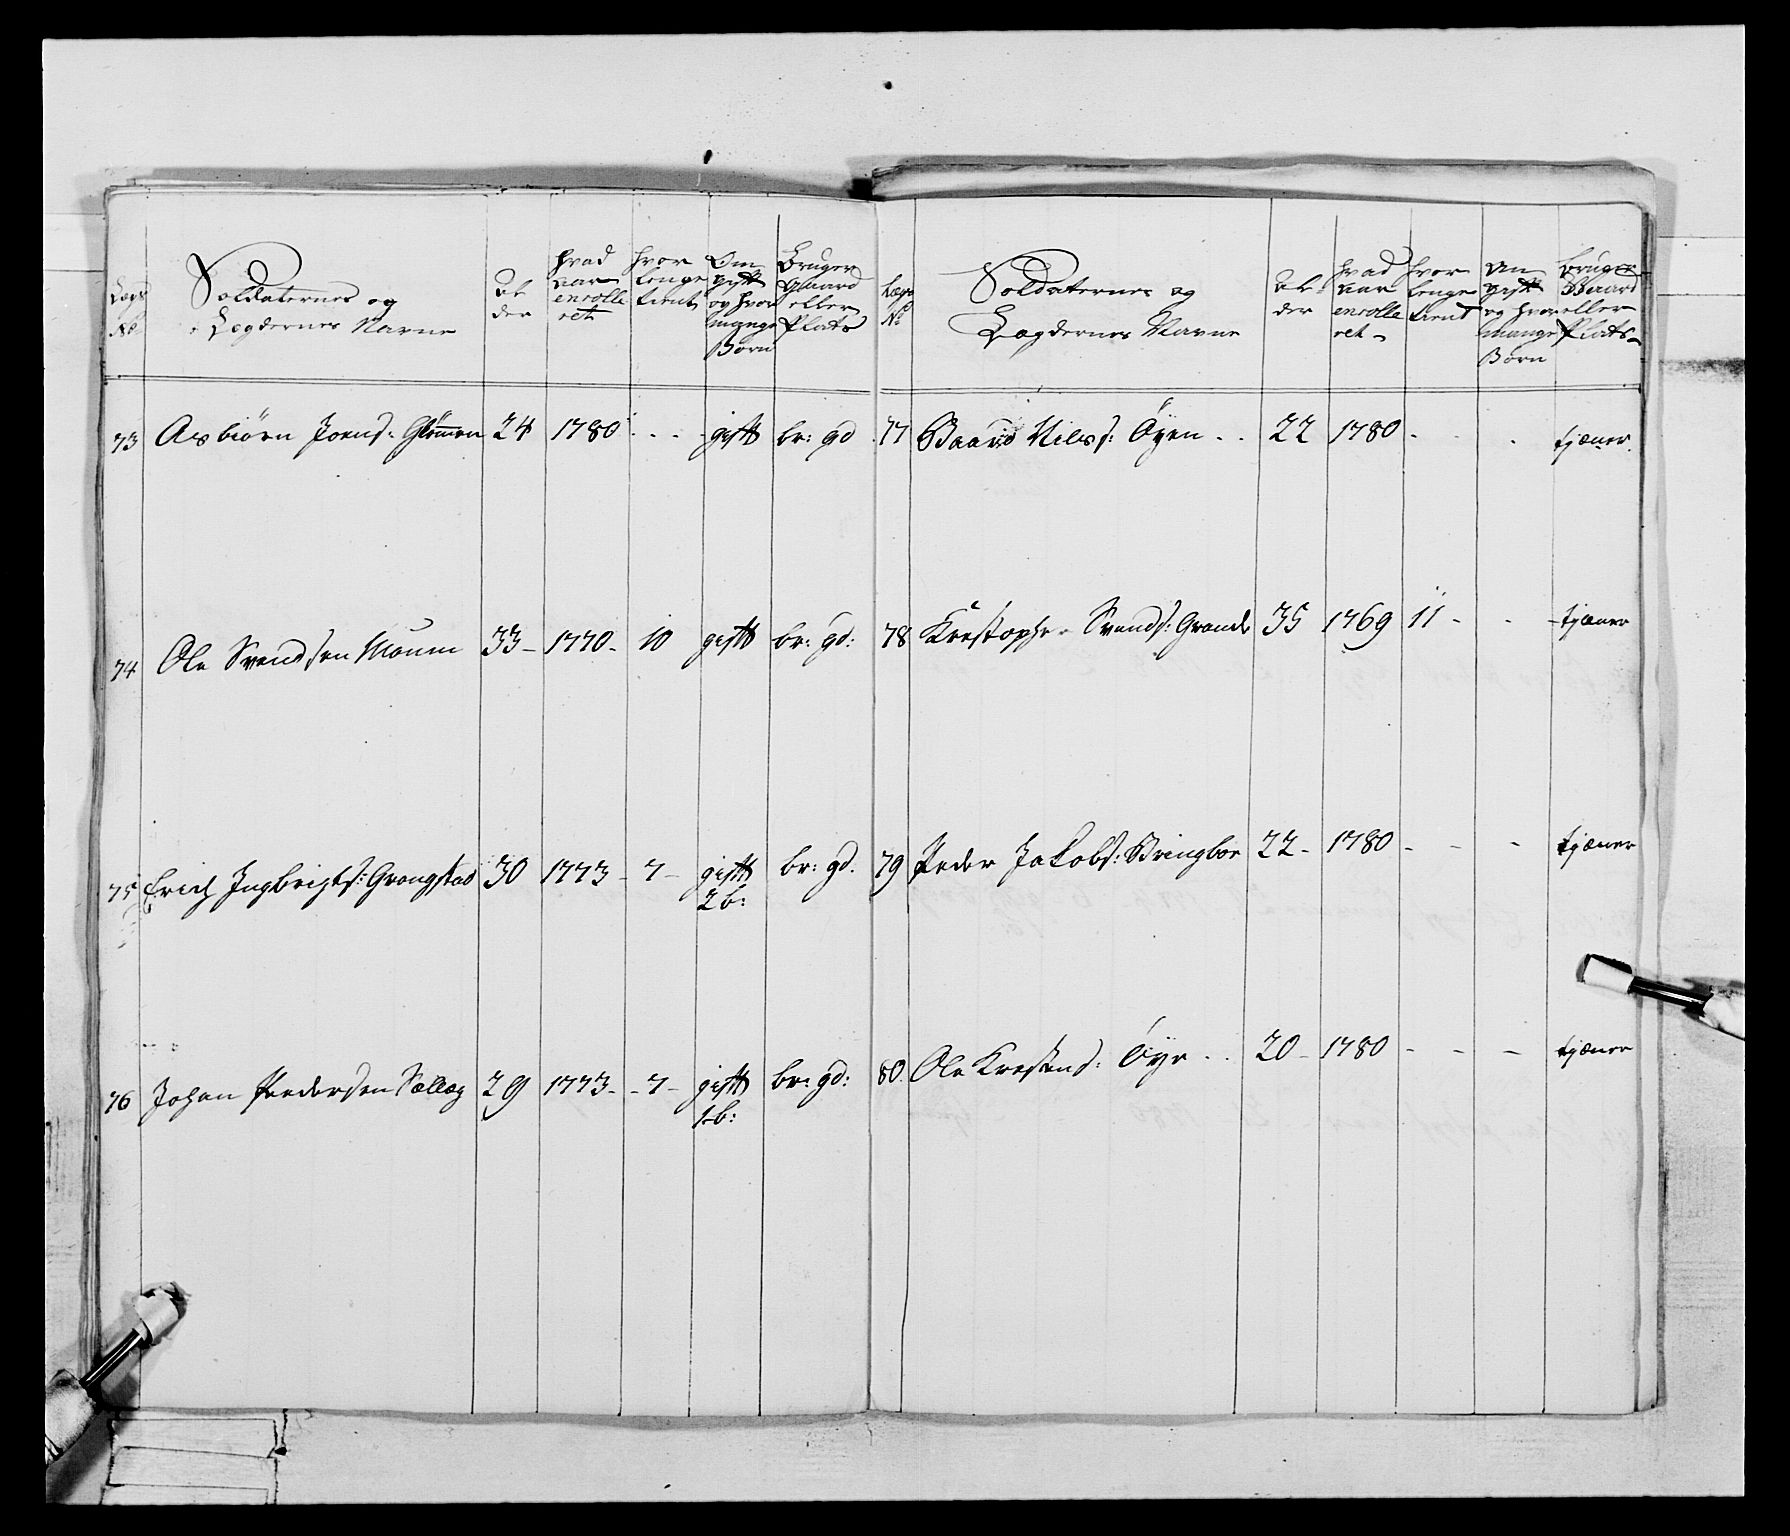 Lægs No:
Soldaternes og Lægdernes Navne
Alder
hvad aar enrolleret
hvor lenge tient
Om gift og hvor mange Børn
Bruger Gaard eller Plads
73 Asbiørn Joens: Glömmen 24 1780 - - - gift br: gd
74 Ole Svendsen Moum 33 - 1770 - 10 gift br: gd:
75 Erich Ingbrigts: Grongstad 30 1773 - 7 - gift br: gd.
2 b:
76 Johan Pedersen Sellæg 29 1773 - - 7 - gift br: gd:
1 b:
Lægs No
Soldaternes og
Lægdernes Navne
Alder
hvad aar enrolleret -
hvor lenge tient
om gift og hvor mange Børn
bruger Gaard eller Plats -
77 Baard Nils: Öyen . . 22 1780 - - - tjæner.
78 Krestopher Svends: Grande 35 1769 11 - - - tjæner
79 Peder Jakobs: Bringboe 22 - 1780 - - - tjæner
80. Ole Krestens: Öye . . 20 - 1780 - - - tjæner